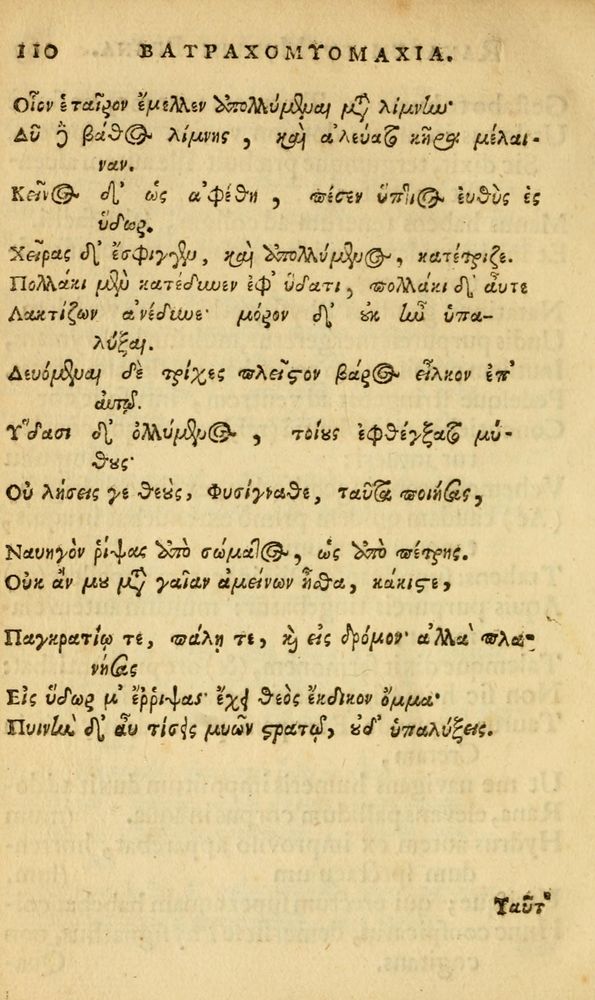 110 ΒΑΤΡΑΧΟΜΥΟΜΑΧΙΑ.
Οἷον ἑταῖρον ἔμελλεν ἀπολλύμεναι μτ̀ λίμνην·
Δῦ ὃ βάθος λίμνης, καὶ ἀλεύατο κῆρα μέλαι-
ναν.
Κεῖνος δ' ὡς ἀφέθη, πέσεν ὕπτιος εὐθὺς ἐς
ὕδωρ.
Χεῖρας δ' ἔσφιγγεν, καὶ ἀπολλύμενος, κατέτριζε.
Πολλάκι μὲν κατέδυνεν ἐφ' ὕδατι, πολλάκι δ' αὖτε
Λακτίζων ἀνέδυνε· μόρον δ' οὐκ ἦν ὑπα-
λύξαι.
Δευόμεναι δὲ τρίχες πλεῖστον βάρος εἷλκον ἐπ'
αὐτῷ.
Ὕδασι δ' ὀλλύμενος, τοίους ἐφθέγξατο μύ-
θους·
Οὐ λήσεις γε θεοὺς, Φυσίγναθε, ταῦτα ποιήσας,
Ναυηγὸν ῥίψας ἀπὸ σώματος, ὡς ἀπὸ πέτρης.
Οὐκ ἄν μου μτ̀ γαῖαν ἀμείνων ἦσθα, κάκιστε,
Παγκρατίῳ τε, πάλῃ τε, καὶ εἰς δρόμον· ἀλλὰ πλα-
νήσας
Εἰς ὕδωρ μ' ἔῤῥιψας· ἔχει θεὸς ἔκδικον ὄμμα·
Ποινὴν δ' αὖ τίσεις μυῶν στρατῷ, οὐδ' ὑπαλύξεις.
Ταῦτ'